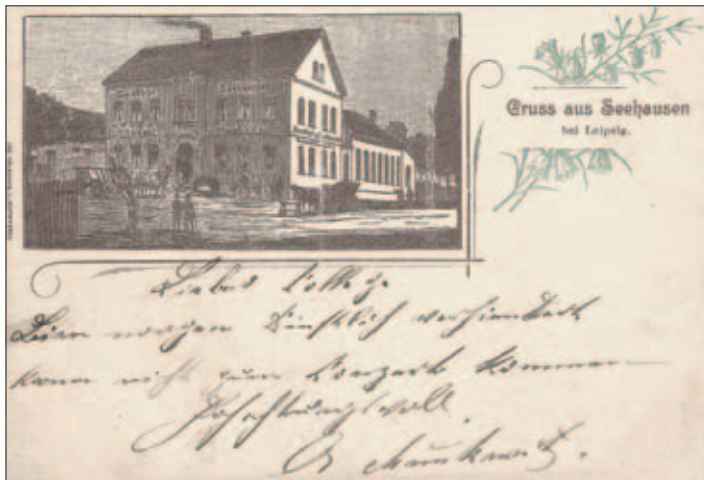 Gruss aus Seehausen
bei Leipzig.
Lieber College
Bin morgen Dienstlich verhindert
kann nicht zum Conzert kommen
Hochachtungsvoll